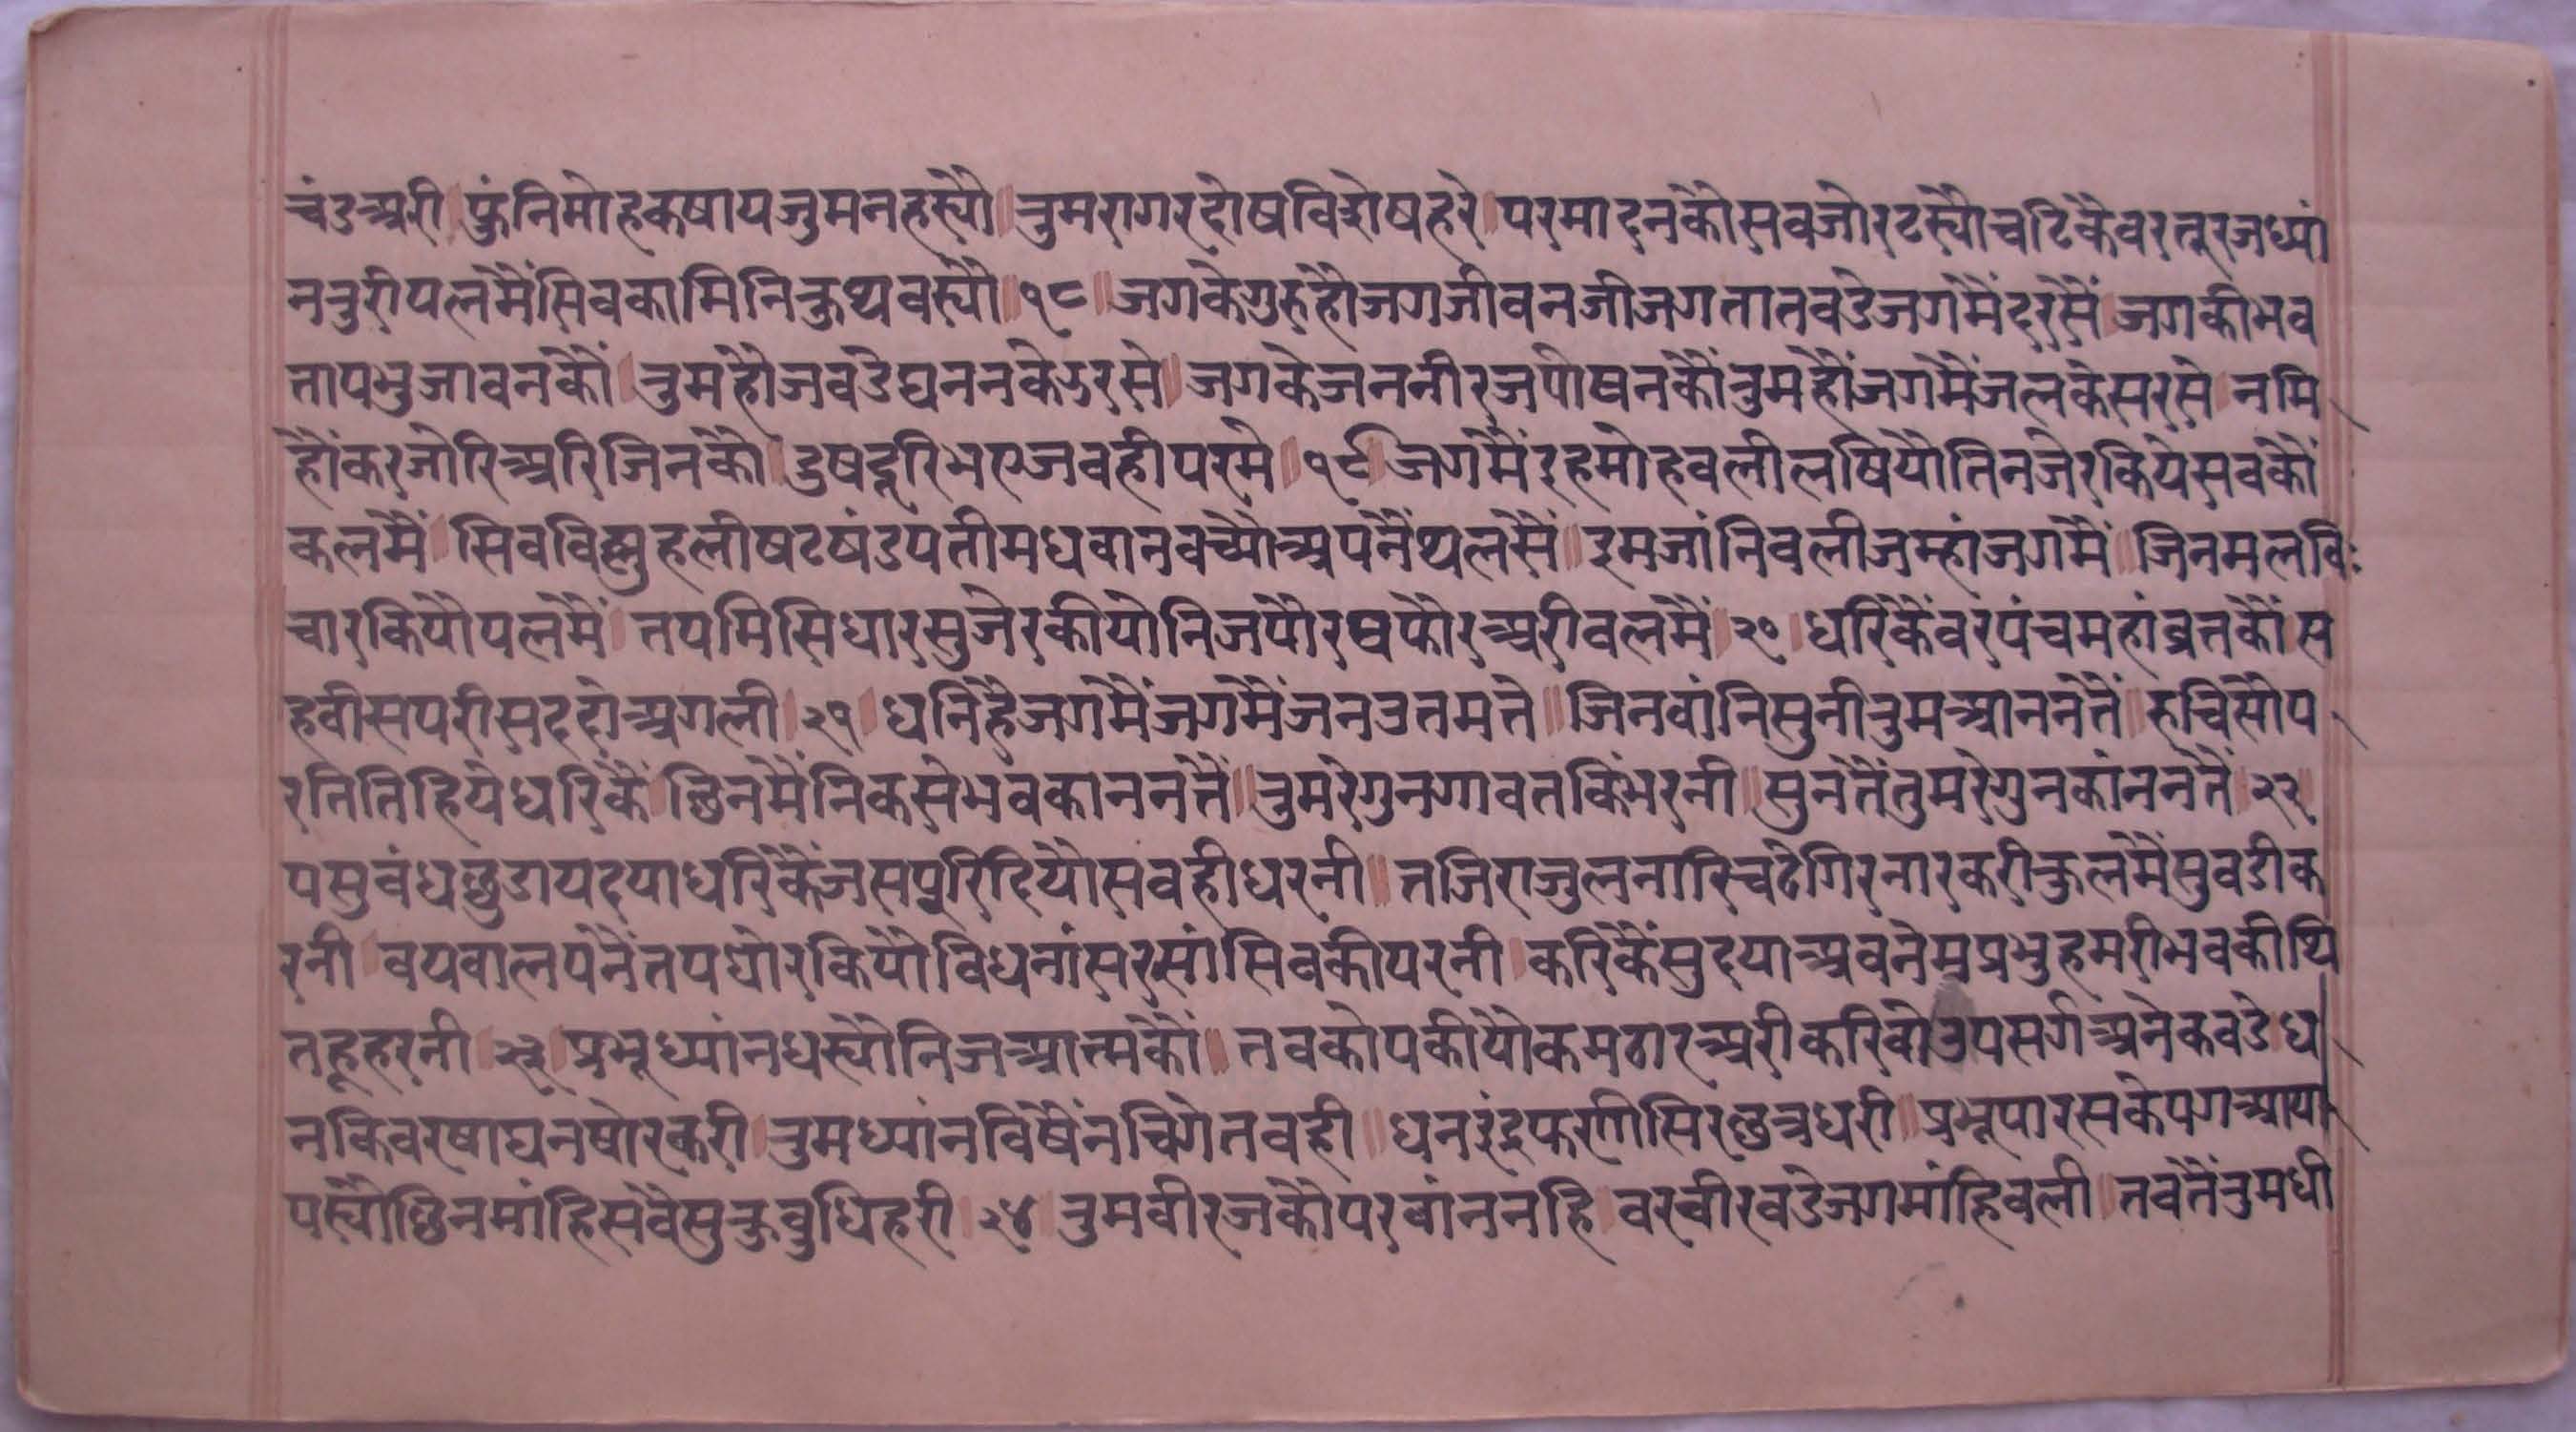 चंडअरी । फुंनिमोहकषायजुमनहर्यौ । तुमरागरदोषविद्दोषहरे । परमादनकौसवजोरटर्यौचटिकैवरतूरजध्यां
नतुरीपलमैंसिवकामिनिकुथवर्यौ ॥ १८ ॥ जगकेगुरुहौजगजीवनजीजगतातवडेजगमैंदरसैं । जगकीभव
तापभुजावनकौं । तुमहौजवडेघननकेऽरसे । जगकेजननीरजपोषनकौंतुमहौंजगमैंजलकेसरसे । नमि
हौंकरजोरिअरिजिनकौ । दुषद्दूरिभएजवहीपरमे । १९ । जगमैंइहमोहवलीलषियौतिनजेरकियेसवकौं
कलमैं । सिवविह्मुहलीषटषंडपतीमघवानवच्यौअपनैंथलसैं ॥ इमजांनिवलीजम्हांजगमैं ॥ जिनमलवि
चारकियौपलमैं । तपमिसिधारसुजेरकीयोनिजपौरषफौरअरीवलमैं । २० । धरिकैंवरपंचमहांव्रतकौं । स
हवीसपरीसददोअगली । २१ । धनिहैजगमैंजगमैंजनउतमते ॥ जिनवांनिसुनीतुमआननतैं । रुचिसौप
रतितिहियेधरिकैं । छिनमैंनिकसेभवकाननतैं ॥ तुमरेगुनगावतकिंभरनी ॥ सुनतैंतुमरेगुनकांननतैं । २२ ॥
पसुवंधछुडायदयाधरिकैंजसपूरिदियौसवहीधरनी ॥ तजिराजुलनारिचढेगिरनारकरीकुलमैंसुवडीक
रनी । वयवालपनैंतपघोरकियौविधनांसरसांसिवकीपरनी । करिकैंसुदयाअवनेमप्रभुहमरीभवकीथि
तहूहरनी । २३ । प्रभूध्यांनधर्यौनिजआत्मकौं ॥ तवकोपकीयोकमठारअरीकरिवोउपसर्गअनेकवडेध
नकिवरषाघनषोरकरी । तुमध्यांनविषैंनचिगेतवही ॥ धनइंद्रफणीसिरछत्रधरी । प्रभूपारसकेपगआया
पर्यौछिनमांहिसवैसुकुवुधिहरी । २४ । तुमवीरजकौपरवांननहि । वरवीरवडेजगमांहिवली । तवतैंतुमधी